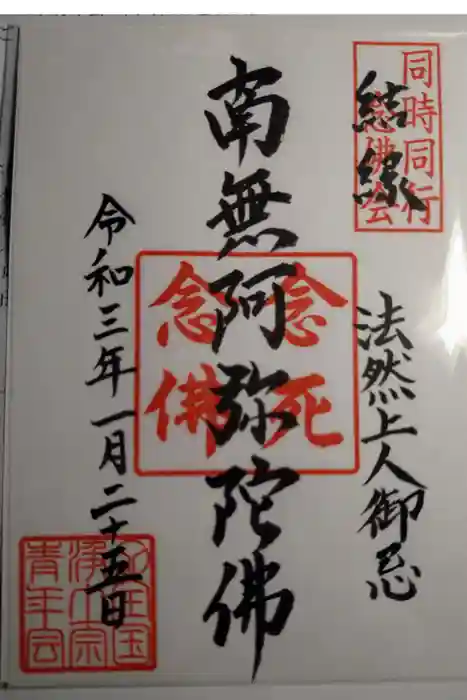 同時同行
念佛会
結縁
法然上人御忌
南無阿弥陀佛
念死
念佛
令和三年一月二十五日
浄土宗
青年会